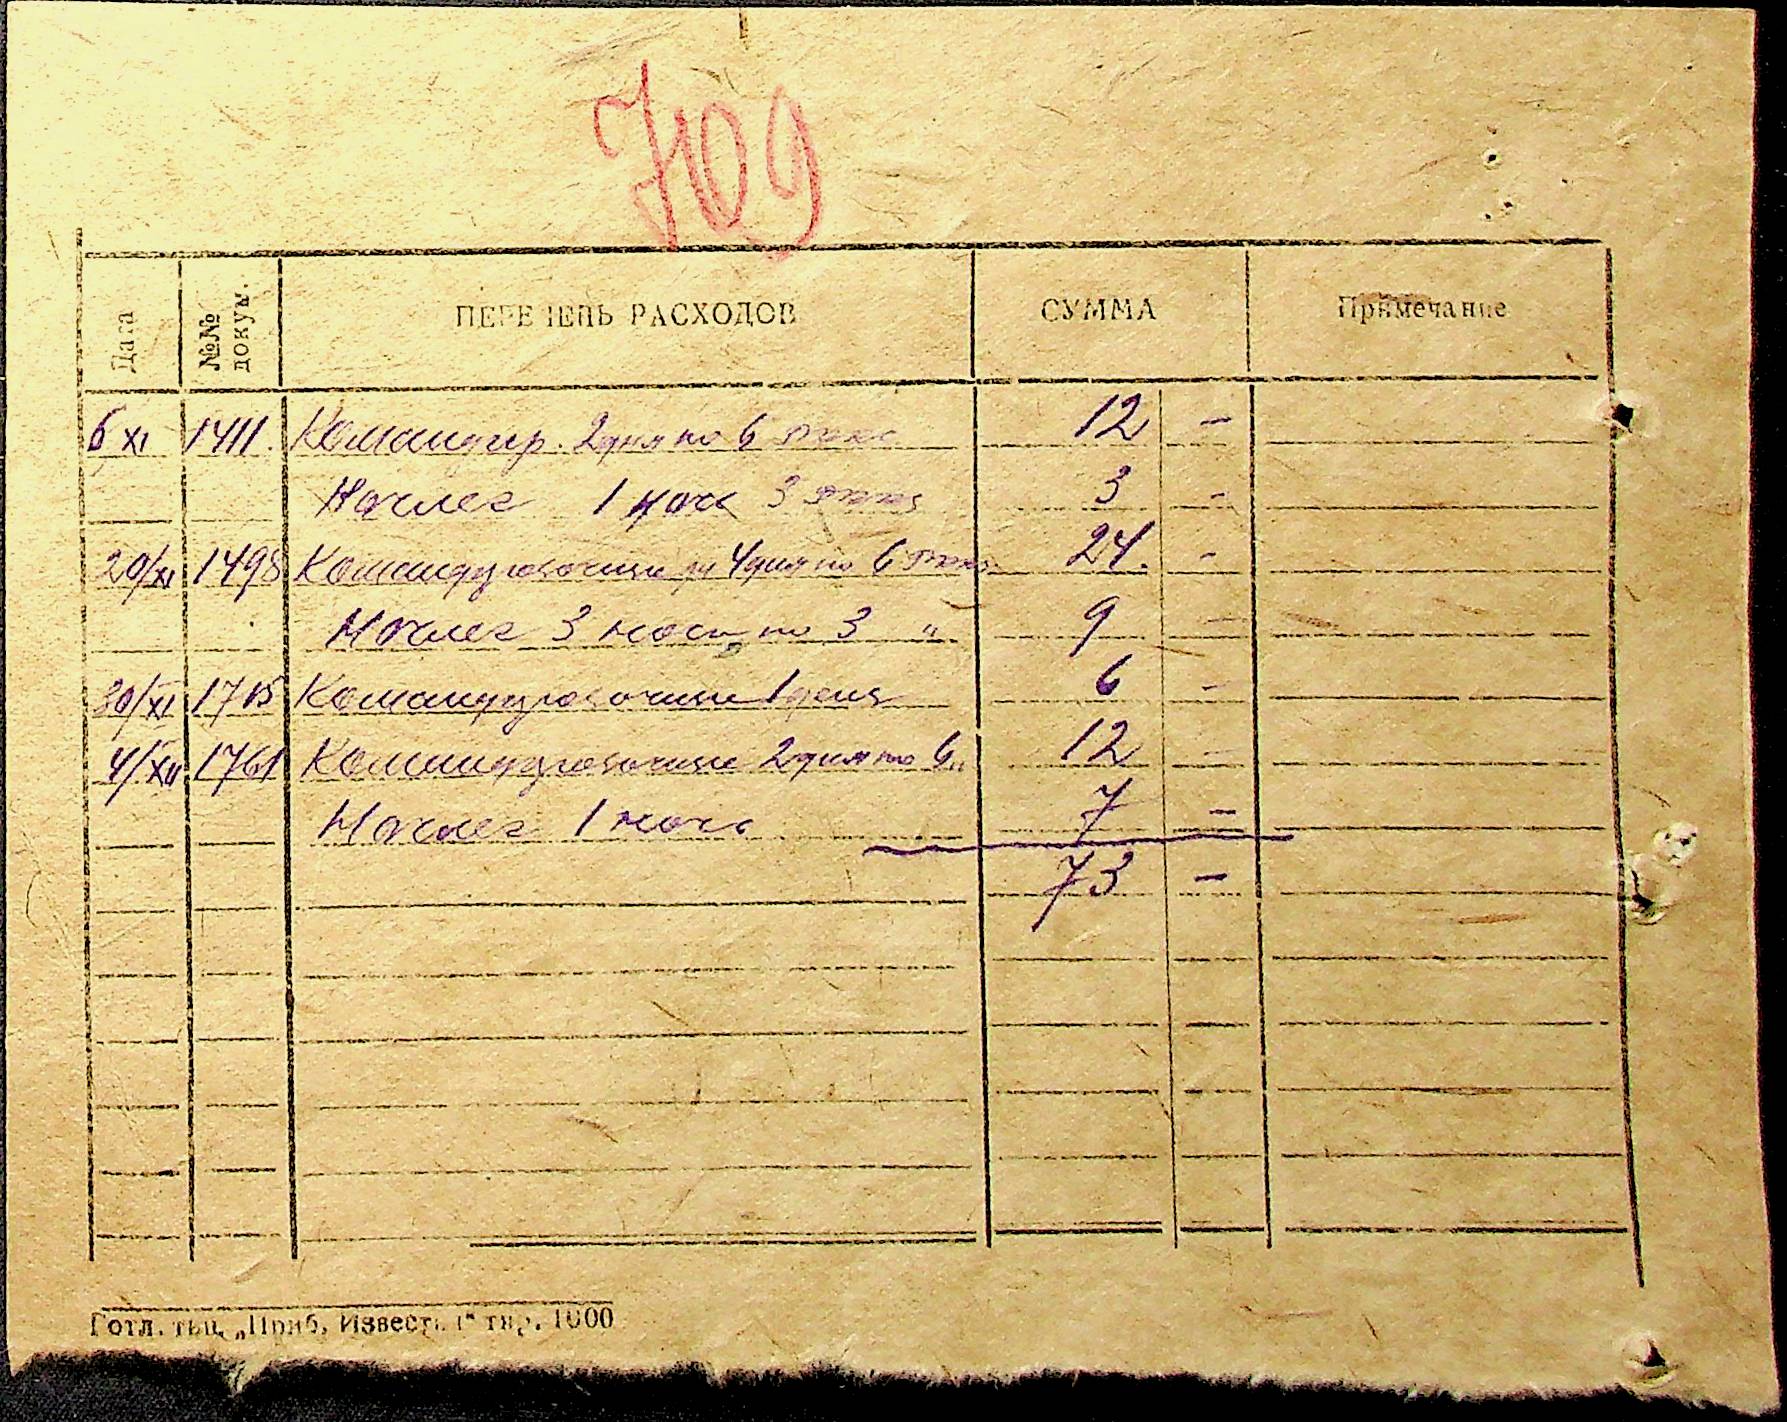 709
Дата №№ докум. ПЕРЕЧЕНЬ РАСХОДОВ СУММА Примечание
6 XI 1411. Командир. 2 дня по 6 12 -
Ночлег 1 ночь 3 3 -
20/XI 1498 Командировочные за 4 дня по 6 24. -
Ночлег 3 ночи по 3 " 9 -
30/XI 1715 Командировочные 1 день 6 -
4/XII 1761 Командировочные 2 дня по 6 " 12 -
Ночлег 1 ночь 7 -
73 -
Готл. тип. „Приб, Известия“ тир. 1000